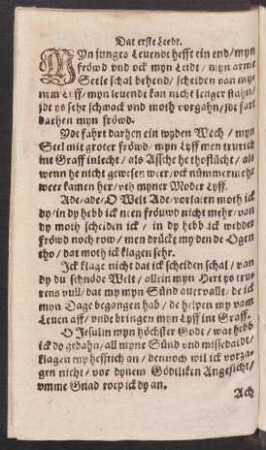 Dat erste Leedt.
MYn junges Leuendt hefft ein end/ myn
fröwd vnd ock myn Leidt/ myn arme
Seele schal behend/ scheiden van my-
nem Liff/ myn leuendt kan nicht lenger stahn/
jdt ys sehr schwack vnd moth vorgahn/ jdt fart
darhen myn fröwd.
Ydt fahrt darhen ein wyden Wech/ myn
Seel mit groter fröwd/ myn Lyff men trurich
int Graff inlecht/ als Assche het tho
als
wenn he nicht gewesen weer/ ock nümmermehr
weer kamen her/ vth myner Moder Lyff.
Ade/ ade/ O Welt Ade/ vorlaten moth ick
dy/ in dy hebb ick neen fröuwd nicht mehr/ van
dy moth scheiden ick/ in dy hebb ick wedder
fröwd noch row/ men drücke my den de Ogen
tho/ dat moth ick klagen sehr.
Ick klage nicht dat ick scheiden schal/ van
dy du schnöde Welt/ allein myn Hert ys tru-
rens vull/ dat my myn Sünd auervallt/ de ick
myn Dage begangen hab/ de helpen my vam
Leuen aff/ vnde bringen myn Lyff int Graff.
O Jesulin myn höchster Godt/ wat hebb
ick dy gedahn/ all myne Sünd vnd missedadt/
klagen my hefftich an/ dennoch wil ick vorza-
gen nicht/ vor dynem Gödtliken Angesicht/
vmme Gnad roep ick dy an.
Ach